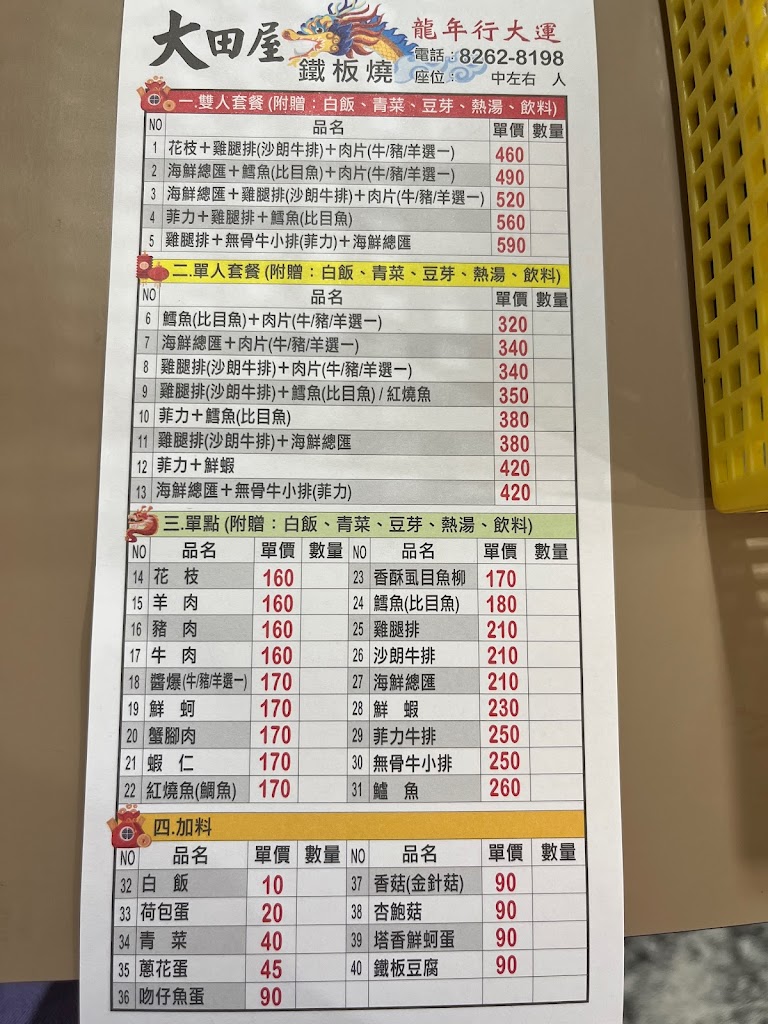 大田屋
鐵板燒
龍年行大運
電話：8262-8198
座位： 中左右 人
一.雙人套餐 (附贈：白飯、青菜、豆芽、熱湯、飲料)
NO 品名 單價 數量
1 花枝＋雞腿排(沙朗牛排)＋肉片(牛/豬/羊選一) 460
2 海鮮總匯＋鱈魚(比目魚)＋肉片(牛/豬/羊選一) 490
3 海鮮總匯＋雞腿排(沙朗牛排)＋肉片(牛/豬/羊選一) 520
4 菲力＋雞腿排＋鱈魚(比目魚) 560
5 雞腿排＋無骨牛小排(菲力)＋海鮮總匯 590
二.單人套餐 (附贈：白飯、青菜、豆芽、熱湯、飲料)
NO 品名 單價 數量
6 鱈魚(比目魚)＋肉片(牛/豬/羊選一) 320
7 海鮮總匯＋肉片(牛/豬/羊選一) 340
8 雞腿排(沙朗牛排)＋肉片(牛/豬/羊選一) 340
9 雞腿排(沙朗牛排)＋鱈魚(比目魚) / 紅燒魚 350
10 菲力＋鱈魚(比目魚) 380
11 雞腿排(沙朗牛排)＋海鮮總匯 380
12 菲力＋鮮蝦 420
13 海鮮總匯＋無骨牛小排(菲力) 420
三.單點 (附贈：白飯、青菜、豆芽、熱湯、飲料)
NO 品名 單價 數量 NO 品名 單價 數量
14 花 枝 160 23 香酥虱目魚柳 170
15 羊 肉 160 24 鱈魚(比目魚) 180
16 豬 肉 160 25 雞腿排 210
17 牛 肉 160 26 沙朗牛排 210
18 醬爆(牛/豬/羊選一) 170 27 海鮮總匯 210
19 鮮 蚵 170 28 鮮 蝦 230
20 蟹腳肉 170 29 菲力牛排 250
21 蝦 仁 170 30 無骨牛小排 250
22 紅燒魚(鯛魚) 170 31 鱸 魚 260
四.加料
NO 品名 單價 數量 NO 品名 單價 數量
32 白 飯 10 37 香菇(金針菇) 90
33 荷包蛋 20 38 杏鮑菇 90
34 青 菜 40 39 塔香鮮蚵蛋 90
35 蔥花蛋 45 40 鐵板豆腐 90
36 吻仔魚蛋 90